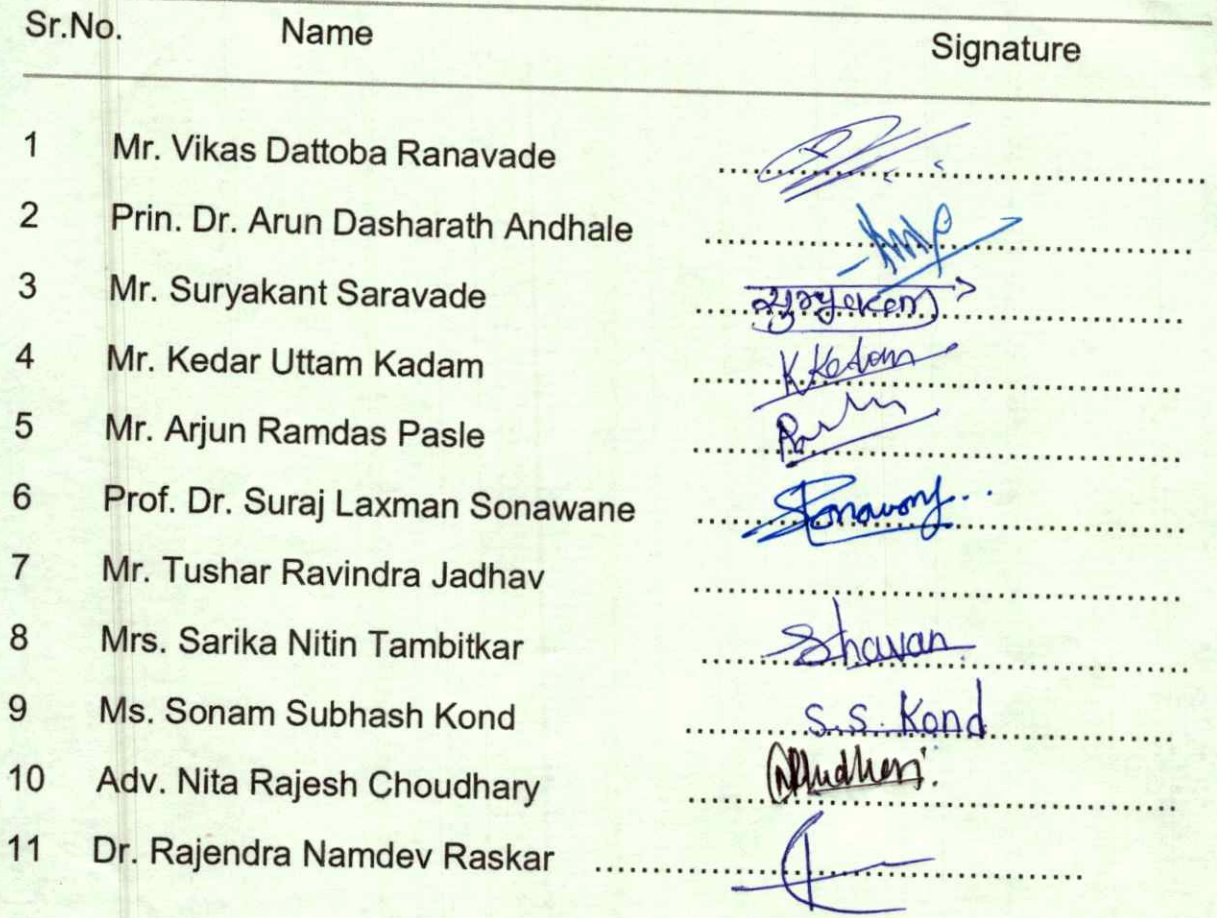 Sr.No. Name Signature
1 Mr. Vikas Dattoba Ranavade
2 Prin. Dr. Arun Dasharath Andhale
3 Mr. Suryakant Saravade
4 Mr. Kedar Uttam Kadam K Kedar
5 Mr. Arjun Ramdas Pasle
6 Prof. Dr. Suraj Laxman Sonawane
7 Mr. Tushar Ravindra Jadhav
8 Mrs. Sarika Nitin Tambitkar Schavan
9 Ms. Sonam Subhash Kond S.S. Kond
10 Adv. Nita Rajesh Choudhary
11 Dr. Rajendra Namdev Raskar